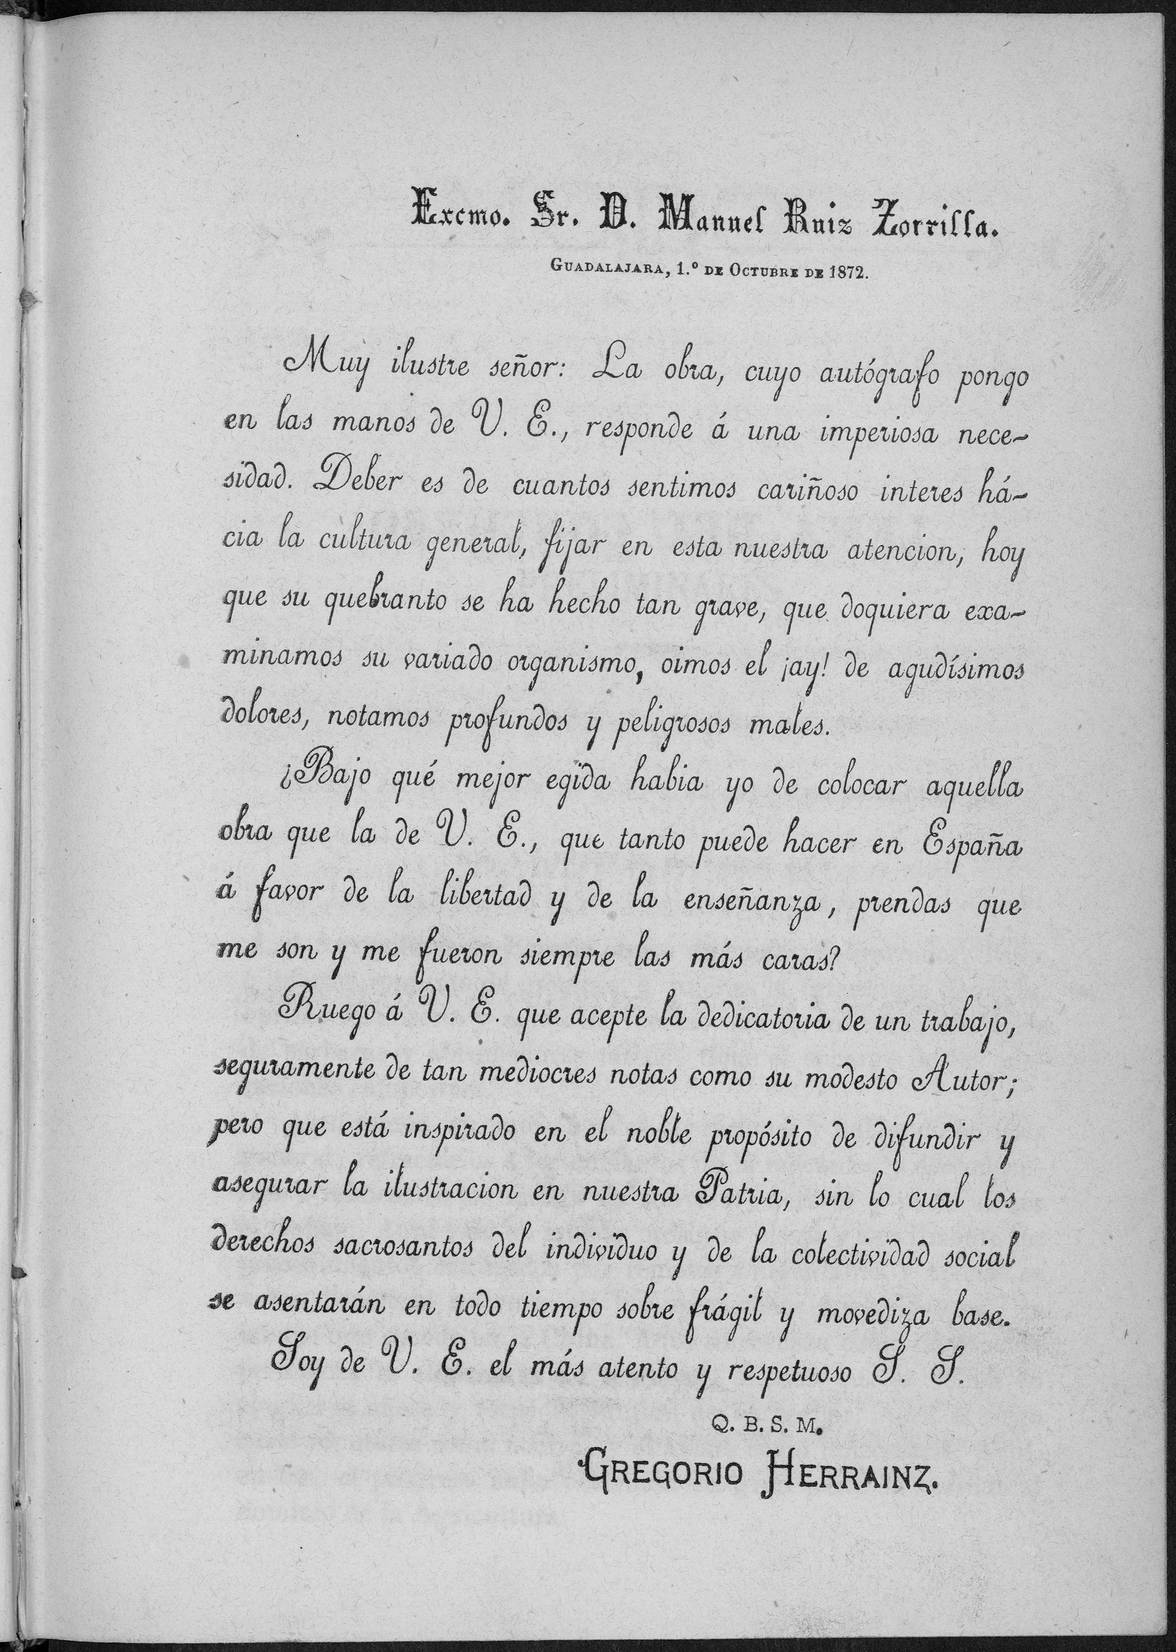 Excmo. Sr. D. Manuel Ruiz Zorrilla.
Guadalajara, 1.º de Octubre de 1872.
Muy ilustre señor: La obra, cuyo autógrafo pongo
en las manos de V. E., responde á una imperiosa nece-
sidad. Deber es de cuantos sentimos cariñoso interes há-
cia la cultura general, fijar en esta nuestra atencion, hoy
que su quebranto se ha hecho tan grave, que doquiera exa-
minamos su variado organismo, oimos el ¡ay! de agudísimos
dolores, notamos profundos y peligrosos males.
¿Bajo qué mejor egida habia yo de colocar aquella
obra que la de V. E., que tanto puede hacer en España
á favor de la libertad y de la enseñanza, prendas que
me son y me fueron siempre las más caras?
Ruego á V. E. que acepte la dedicatoria de un trabajo,
seguramente de tan mediocres notas como su modesto Autor;
pero que está inspirado en el noble propósito de difundir y
asegurar la ilustracion en nuestra Patria, sin lo cual los
derechos sacrosantos del individuo y de la colectividad social
se asentarán en todo tiempo sobre frágil y movediza base.
Soy de V. E. el más atento y respetuoso S. S.
Q. B. S. M.
Gregorio Herrainz.